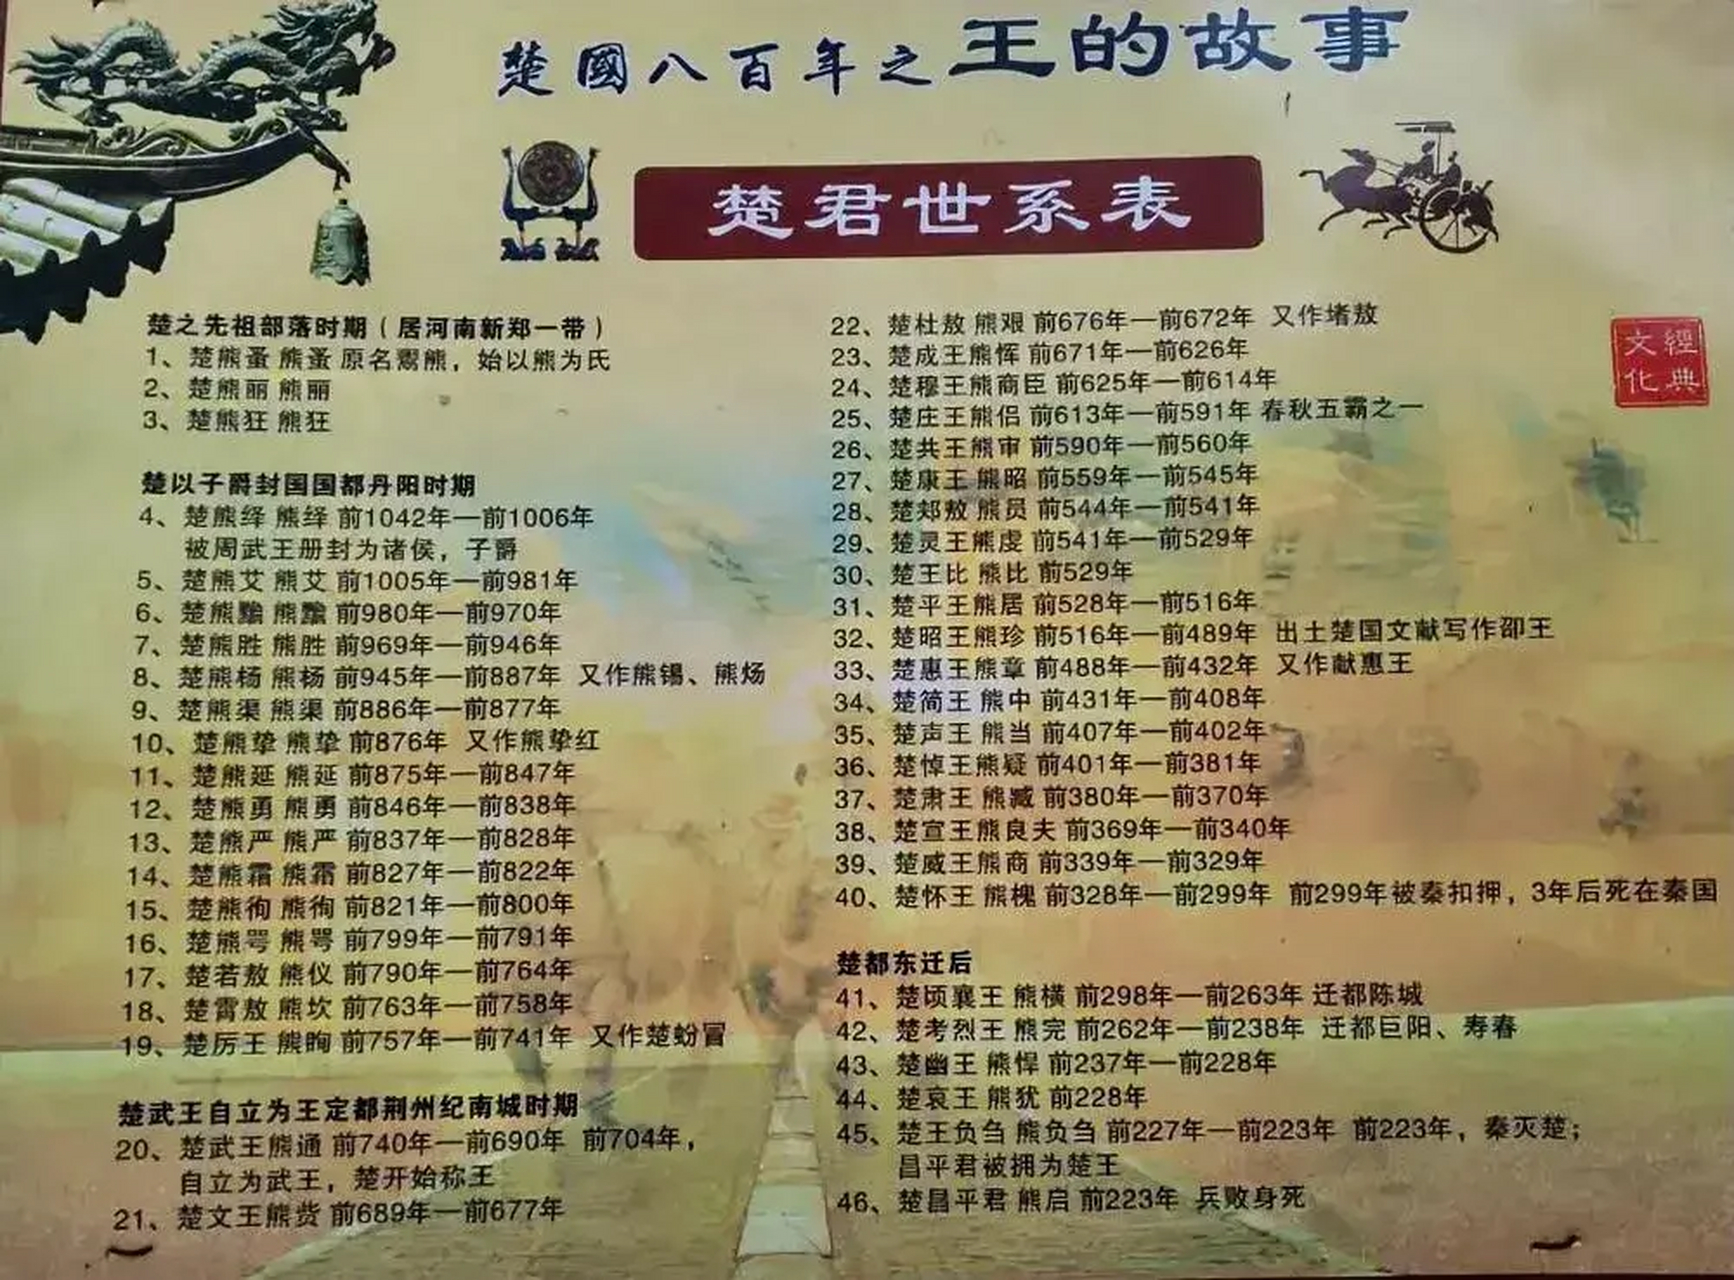 楚國八百年之王的故事
楚君世系表
經典
文化
楚之先祖部落时期（居河南新郑一带）
1、楚熊蚤 熊蚤 原名鬻熊，始以熊为氏
2、楚熊丽 熊丽
3、楚熊狂 熊狂
楚以子爵封国国都丹阳时期
4、楚熊绎 熊绎 前1042年—前1006年
被周武王册封为诸侯，子爵
5、楚熊艾 熊艾 前1005年—前981年
6、楚熊䵣 熊䵣 前980年—前970年
7、楚熊胜 熊胜 前969年—前946年
8、楚熊杨 熊杨 前945年—前887年 又作熊锡、熊炀
9、楚熊渠 熊渠 前886年—前877年
10、楚熊挚 熊挚 前876年 又作熊挚红
11、楚熊延 熊延 前875年—前847年
12、楚熊勇 熊勇 前846年—前838年
13、楚熊严 熊严 前837年—前828年
14、楚熊霜 熊霜 前827年—前822年
15、楚熊徇 熊徇 前821年—前800年
16、楚熊咢 熊咢 前799年—前791年
17、楚若敖 熊仪 前790年—前764年
18、楚霄敖 熊坎 前763年—前758年
19、楚厉王 熊眴 前757年—前741年 又作楚蚡冒
楚武王自立为王定都荆州纪南城时期
20、楚武王熊通 前740年—前690年 前704年，
自立为武王，楚开始称王
21、楚文王熊赀 前689年—前677年
22、楚杜敖 熊艰 前676年—前672年 又作堵敖
23、楚成王熊恽 前671年—前626年
24、楚穆王熊商臣 前625年—前614年
25、楚庄王熊侣 前613年—前591年 春秋五霸之一
26、楚共王熊审 前590年—前560年
27、楚康王 熊昭 前559年—前545年
28、楚郏敖 熊员 前544年—前541年
29、楚灵王熊虔 前541年—前529年
30、楚王比 熊比 前529年
31、楚平王熊居 前528年—前516年
32、楚昭王熊珍 前516年—前489年 出土楚国文献写作邵王
33、楚惠王熊章 前488年—前432年 又作献惠王
34、楚简王 熊中 前431年—前408年
35、楚声王 熊当 前407年—前402年
36、楚悼王熊疑 前401年—前381年
37、楚肃王 熊臧 前380年—前370年
38、楚宣王熊良夫 前369年—前340年
39、楚威王熊商 前339年—前329年
40、楚怀王 熊槐 前328年—前299年 前299年被秦扣押，3年后死在秦国
楚都东迁后
41、楚顷襄王 熊横 前298年—前263年 迁都陈城
42、楚考烈王 熊完 前262年—前238年 迁都巨阳、寿春
43、楚幽王 熊悍 前237年—前228年
44、楚哀王 熊犹 前228年
45、楚王负刍 熊负刍 前227年—前223年 前223年，秦灭楚；
昌平君被拥为楚王
46、楚昌平君 熊启 前223年 兵败身死